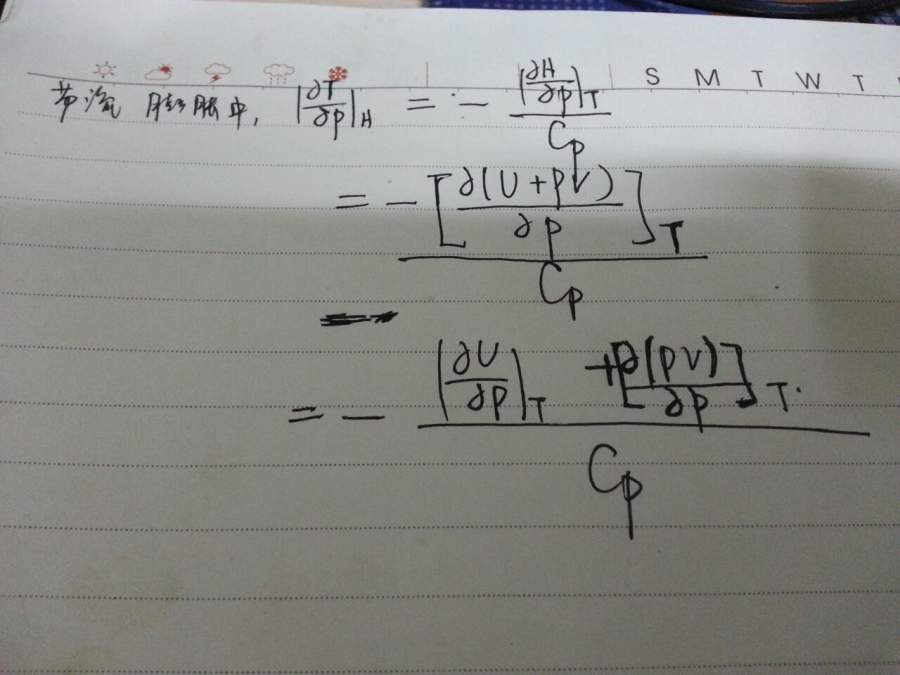 S M T W T
节流膨胀中, (∂T/∂p)_H = - (∂H/∂p)_T / C_p
= - [∂(U+pV)/∂p]_T / C_p
= - (∂U/∂p)_T + [∂(pV)/∂p]_T / C_p